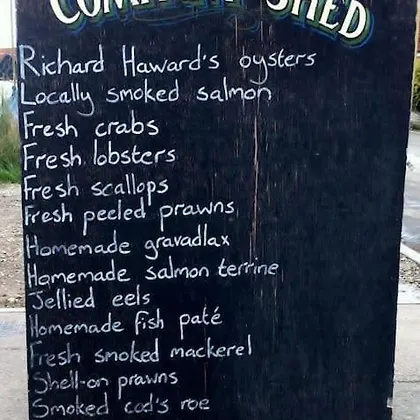 SHED
Richard Haward's oysters
Locally smoked salmon
Fresh crabs
Fresh lobsters
Fresh scallops
Fresh peeled prawns
Homemade gravadlax
Homemade salmon terrine
Jellied eels
Homemade fish paté
Fresh smoked mackerel
Shell-on prawns
Smoked cod's roe